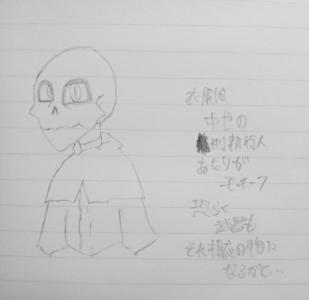 衣装は
中世の
刑執行人
あたりが
モチーフ
恐らく
武器も
それ相応の物に
なるかと…